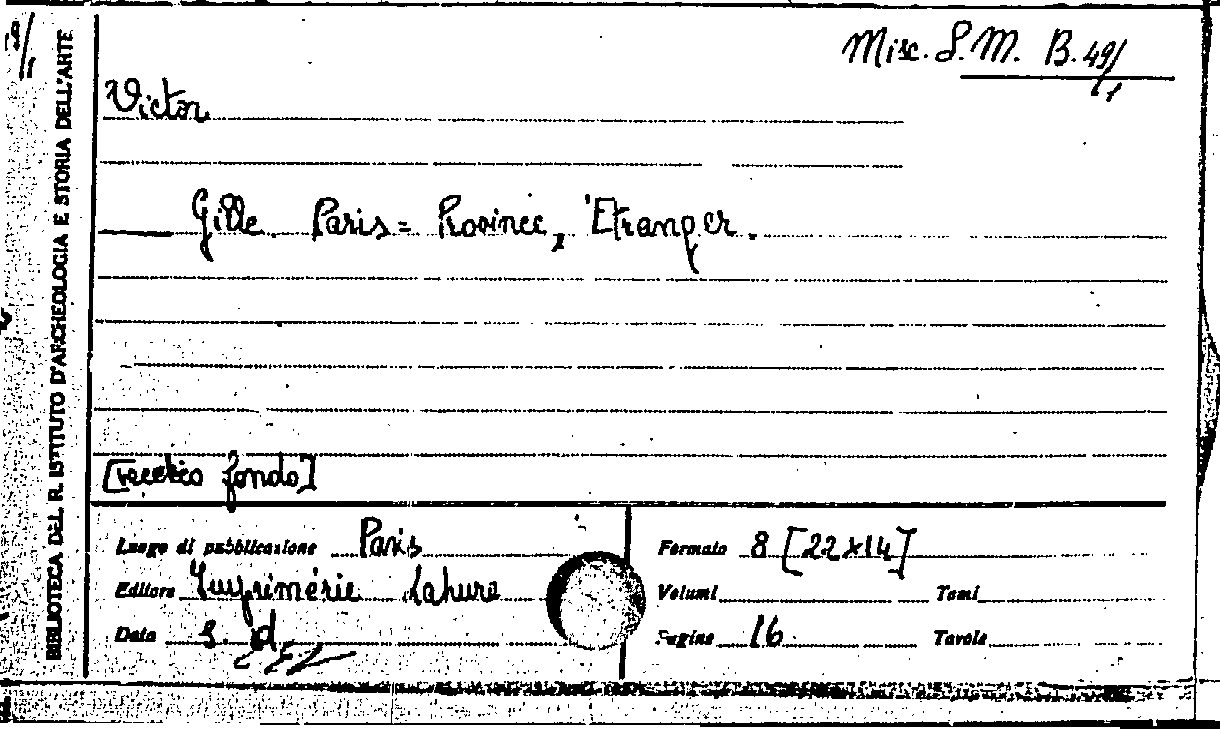 Misc. S. M. B. 49/1
Victor
Gille. Paris = Province, Etranger.
[vecchio fondo]
Luogo di pubblicazione Paris
Formato 8 [22x14]
Editore Imprimérie Lahure
Volumi Tomi
Data s. d.
Pagine 16 Tavole
BIBLIOTECA DEL R. ISTITUTO D'ARCHEOLOGIA E STORIA DELL'ARTE